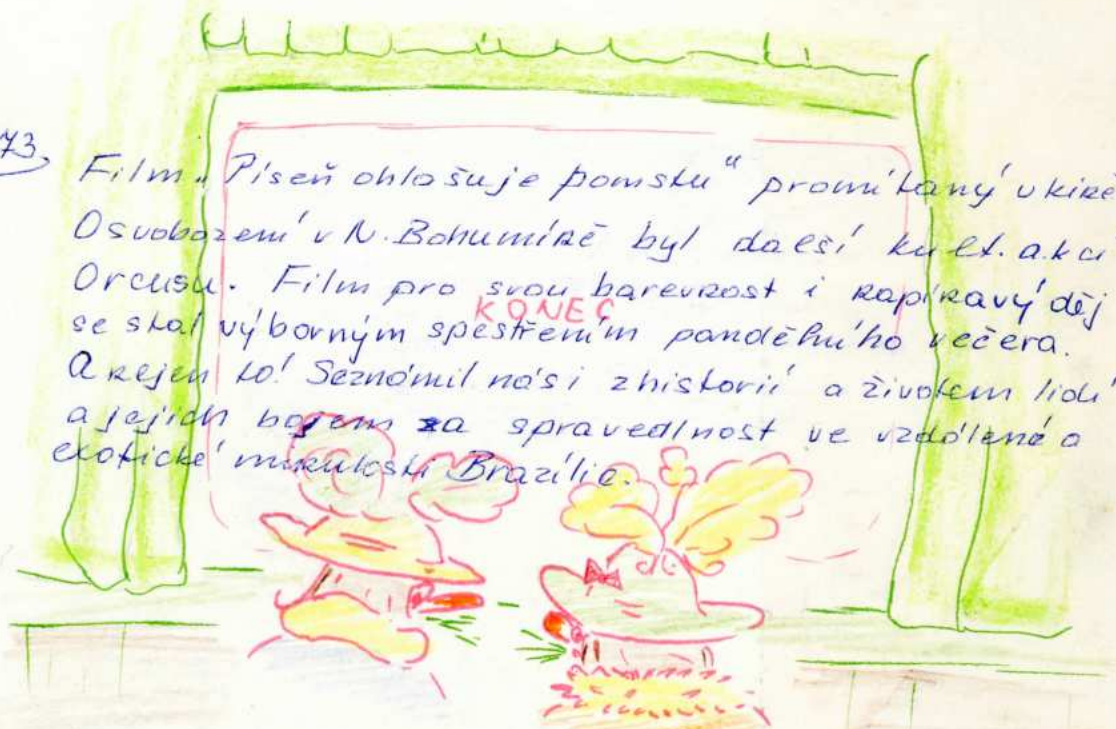 73, Film „Píseň ohlašuje pomstu“ promítaný v kině
Osvobození v N. Bohumíně byl další kult. akcí
Orcusu. Film pro svou barevnost i napínavý děj
KONEC
se stal výborným spestřením pondělního večera.
A nejen to! Seznámil nás i z historií a životem lidí
a jejich bojem za spravedlnost ve vzdálené a
exotické minulosti Brazílie.